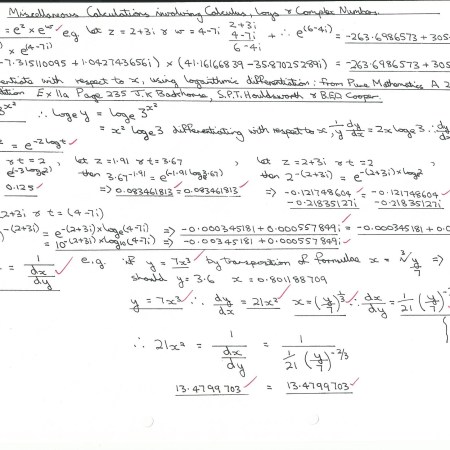 Miscellaneous Calculations involving Calculus, Logs & Complex Numbers.
= e^z × e^w eg let z = 2+3i & w = 4-7i 2+3i 4-7i 6-4i + ∴ e^(6-4i) = -263.6986573 + 305
× e^(4-7i)
-7.315110095 + 1.042743656i) × (41.16166839 - 35.87025289i) = -263.6986573 + 305
entiate with respect to x, using logarithmic differentiation: from Pure Mathematics A 2
dition Ex 11a Page 235 J.K Backhouse, S.P.T. Houldsworth & B.E.D Cooper.
3^x² ∴ Loge y = Loge 3^x²
= x² Loge 3 differentiating with respect to x, 1/y dy/dx = 2x Loge 3 ∴ dy/dx
= e^-zLogt
& t = 2, let z = 1.91 & t = 3.67, let z = 2+3i & t = 2
e^(-3Loge2) then 3.67^-1.91 = e^(-1.91 Loge3.67) then 2^-(2+3i) = e^-(2+3i)×Loge2
0.125 ⇒ 0.083461813 = 0.083461813 ⇒ -0.121748604 -0.21835127i = -0.121748604 -0.21835127i
2+3i & t = (4-7i)
^-(2+3i) = e^-(2+3i)×Loge(4-7i) ⇒ -0.000345181 + 0.000557849i = -0.000345181 + 0.00
= 10^-(2+3i)×Log10(4-7i) ⇒ -0.000345181 + 0.000557849i = -0.000345181 + 0.00
= 1/(dx/dy) e.g. if y = 7x³ by transposition of formulae x = ³√(y/7) ⇒
should y = 3.6 x = 0.801188709
y = 7x³ ∴ dy/dx = 21x² x = (y/7)^1/3 ∴ dx/dy = 1/21 (y/7)^-
∴ 21x² = 1/(dx/dy) = 1/(1/21 (y/7)^-2/3)
13.4799703 = 13.4799703